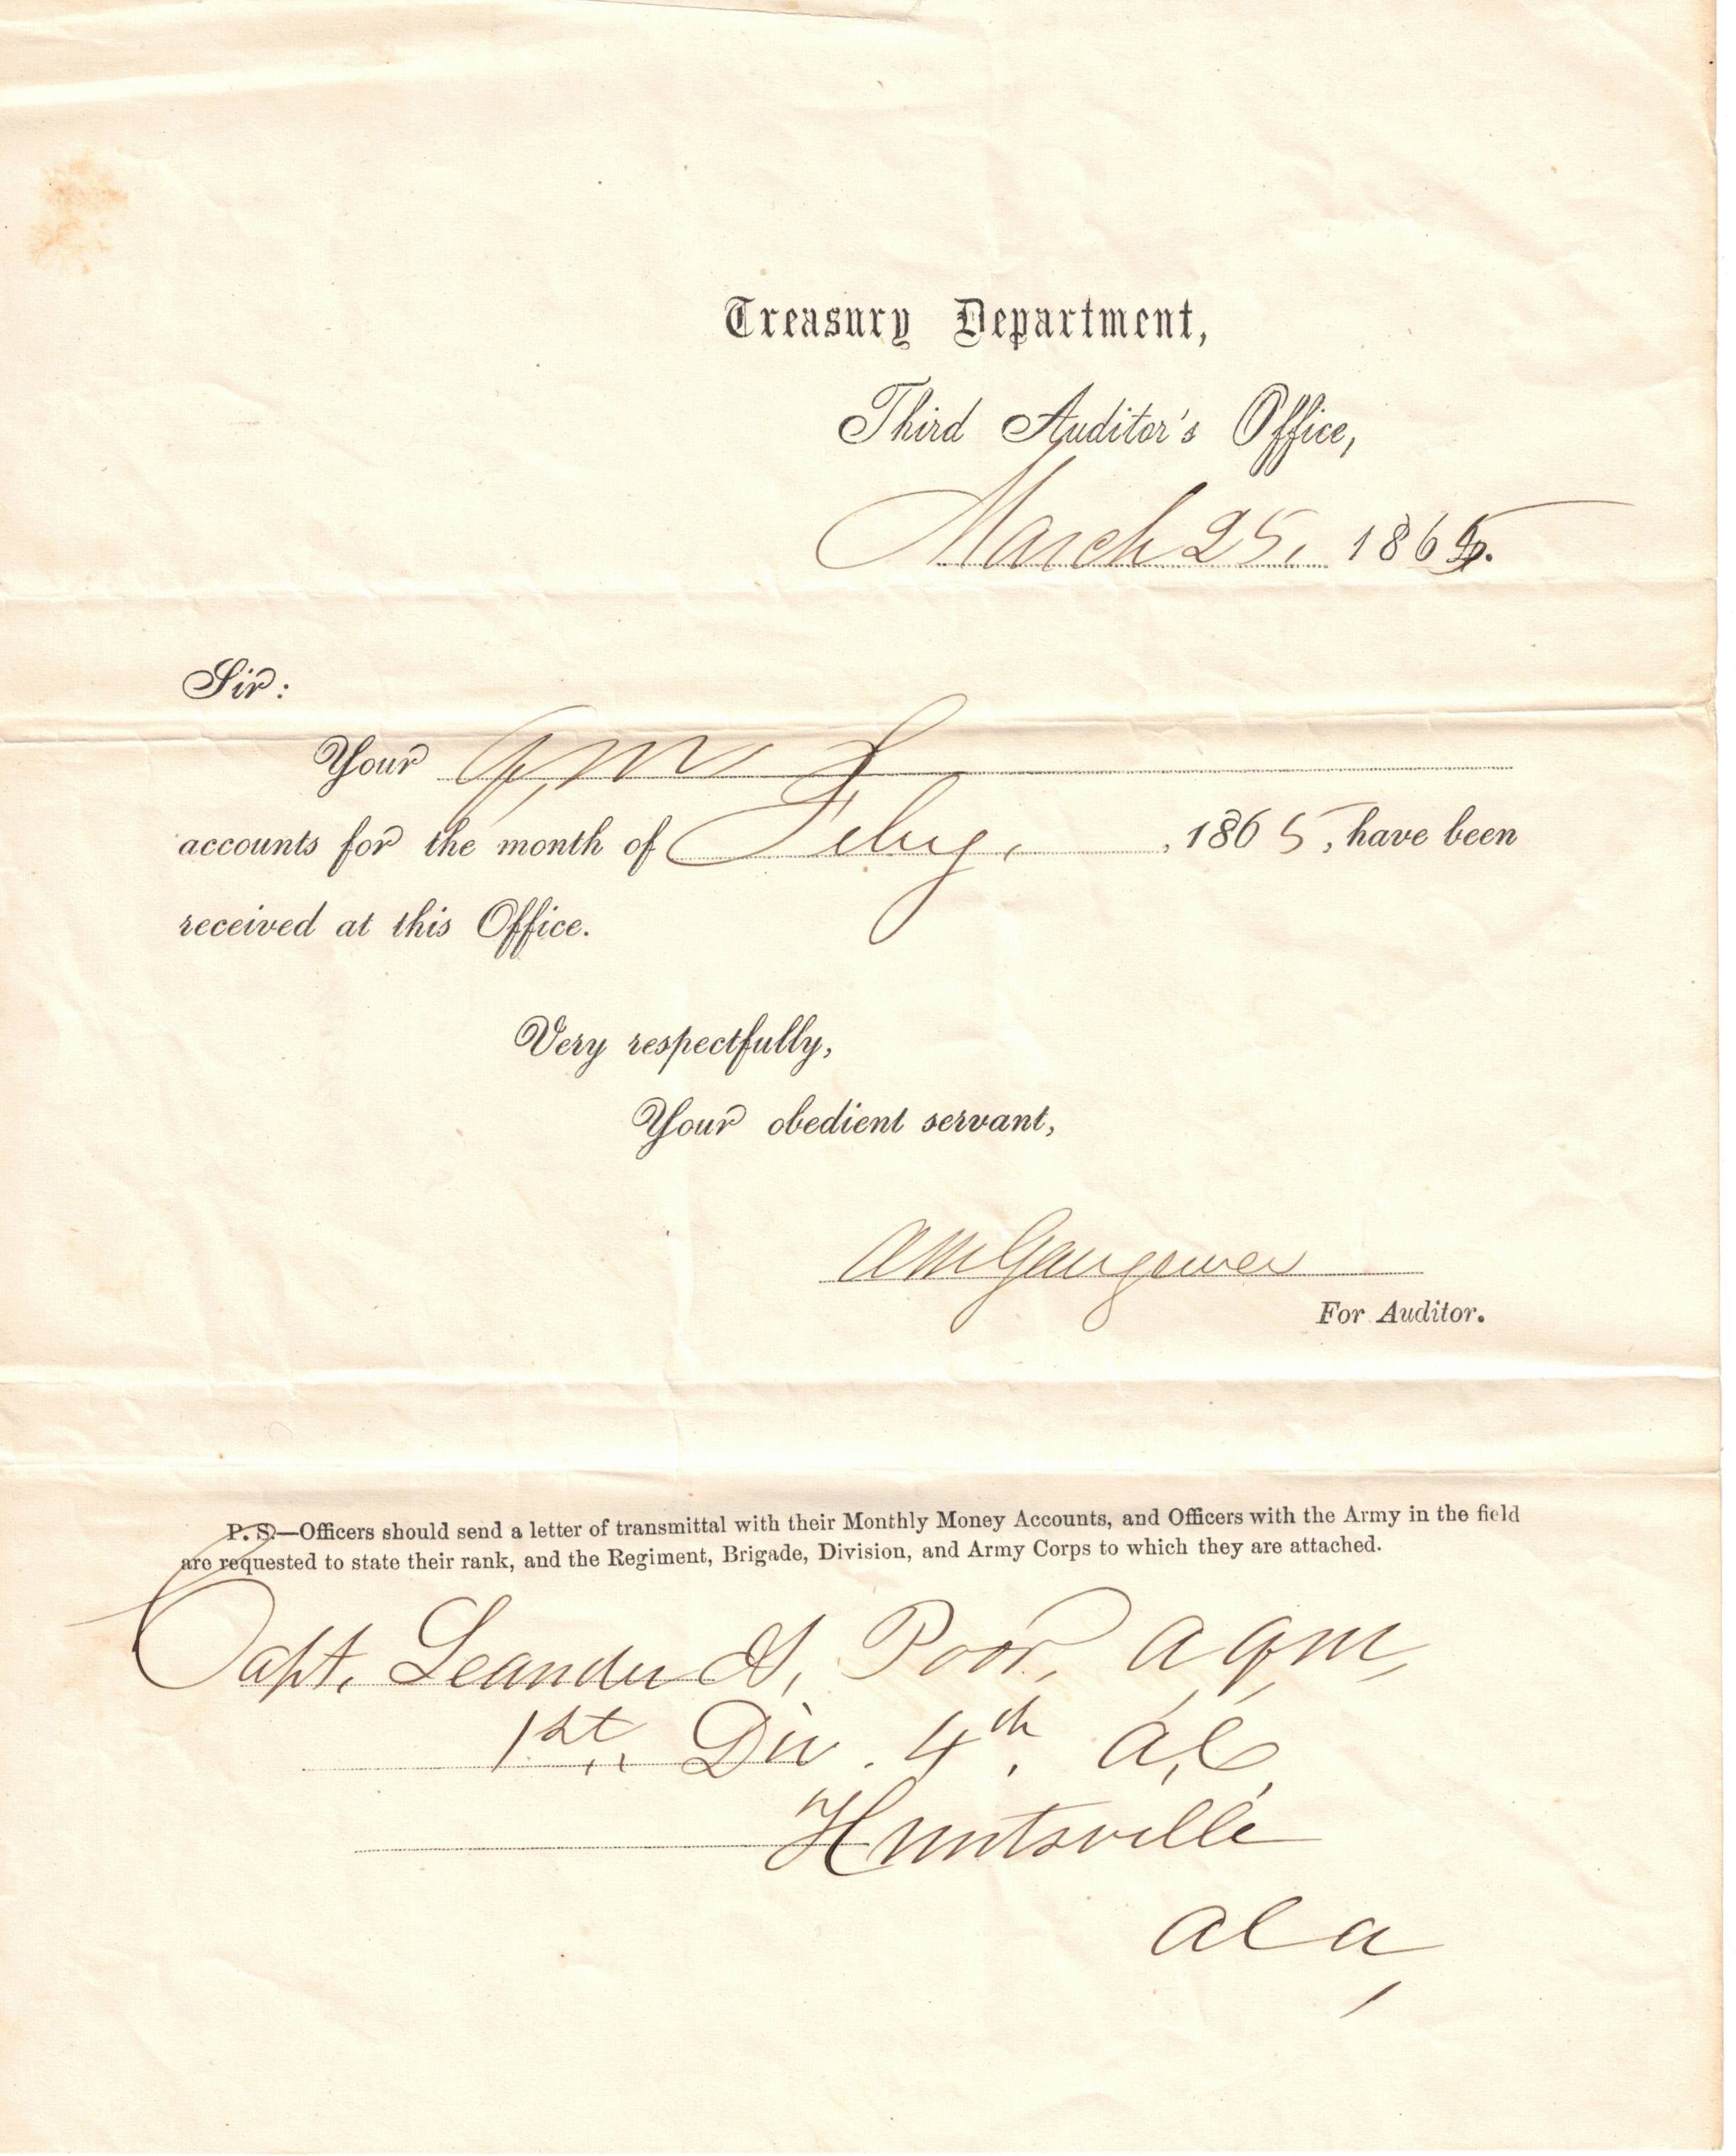 Treasury Department,
Third Auditor's Office,
March 25, 1865.
Sir:
Your Q, M,
accounts for the month of Feby, , 1865, have been
received at this Office.
Very respectfully,
Your obedient servant,
A M Gangewer
For Auditor.
P. S.—Officers should send a letter of transmittal with their Monthly Money Accounts, and Officers with the Army in the field
are requested to state their rank, and the Regiment, Brigade, Division, and Army Corps to which they are attached.
Capt. Leander H, Poor, A Q M,
1st, Div. 4th, A, C,
Huntsville
Ala,